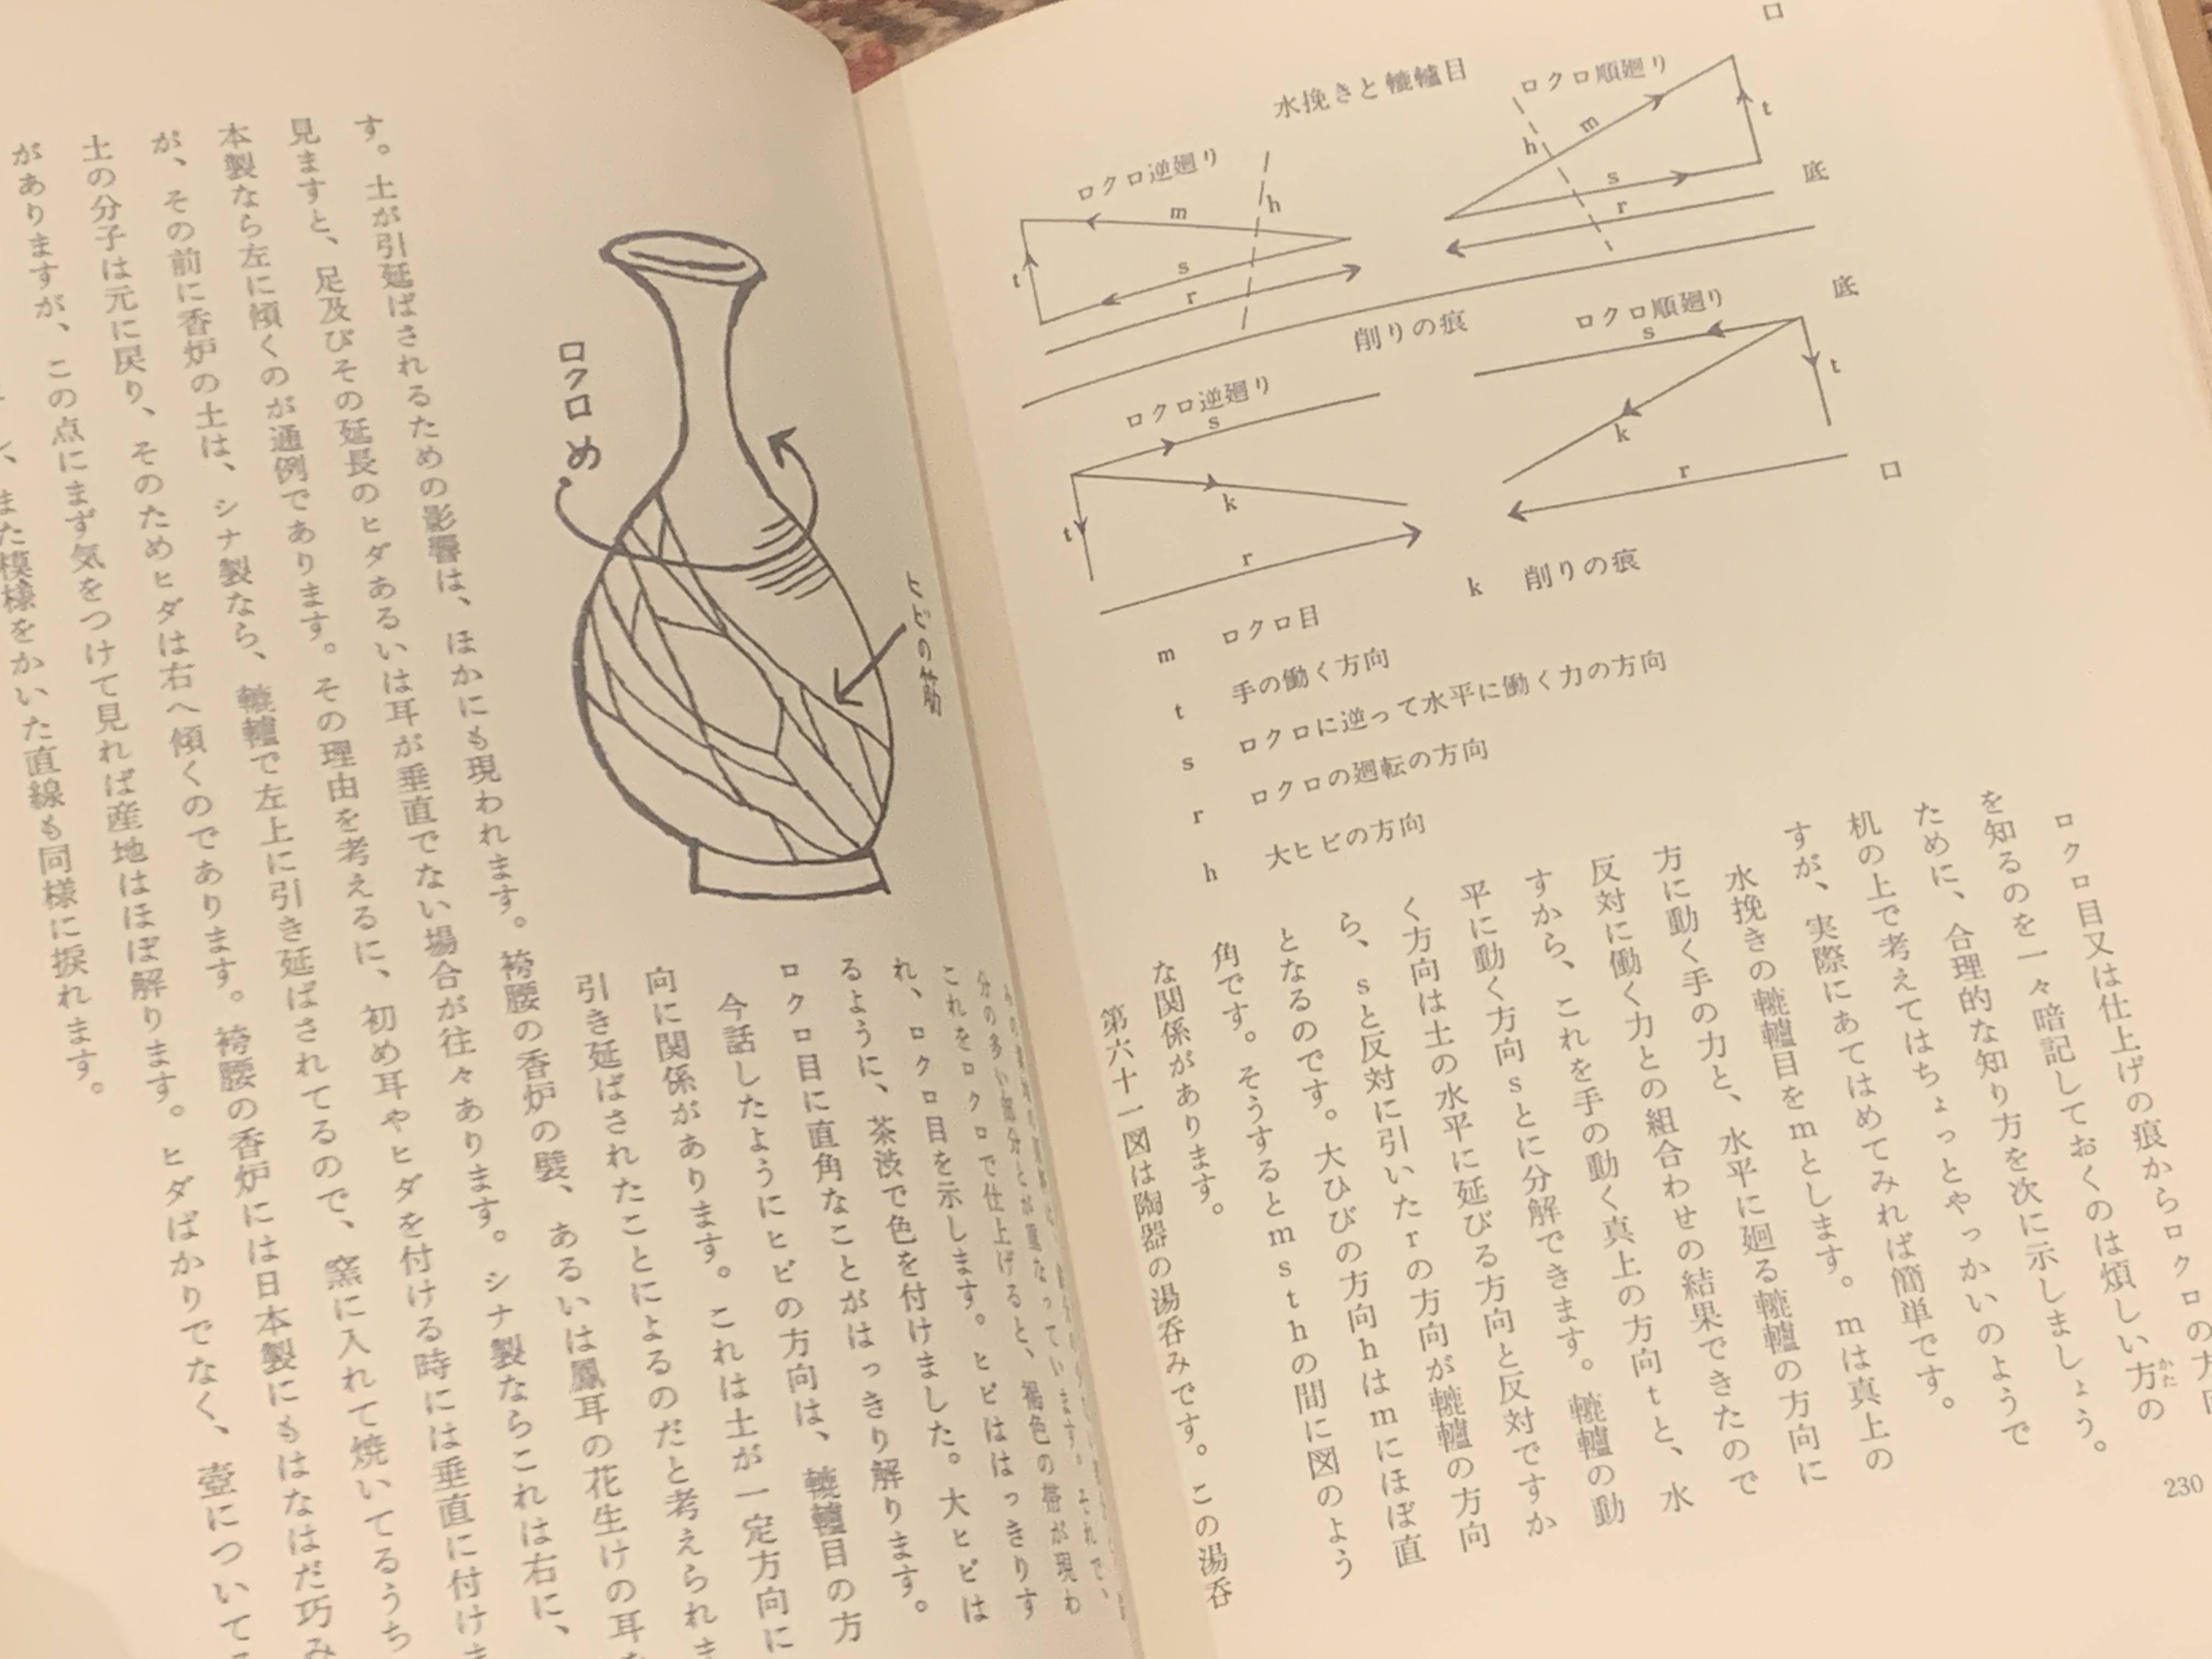 口
水挽きと轆轤目
ロクロ順廻り
h
m
t
s
r
底
ロクロ逆廻り
h
m
t
s
r
削りの痕
底
ロクロ順廻り
s
t
k
r
口
ロクロ逆廻り
s
k
t
r
k 削りの痕
m ロクロ目
t 手の働く方向
s ロクロに逆って水平に働く力の方向
r ロクロの廻転の方向
h 大ヒビの方向
ロクロ目又は仕上げの痕からロクロの方向
を知るのを一々暗記しておくのは煩しい方の
かた
ために、合理的な知り方を次に示しましょう。
机の上で考えてはちょっとやっかいのようで
すが、実際にあてはめてみれば簡単です。
水挽きの轆轤目をmとします。mは真上の
方に動く手の力と、水平に廻る轆轤の方向に
反対に働く力との組合わせの結果できたので
すから、これを手の動く真上の方向tと、水
平に動く方向sとに分解できます。轆轤の動
く方向は土の水平に延びる方向と反対ですか
ら、sと反対に引いたrの方向が轆轤の方向
となるのです。大ひびの方向hはmにほぼ直
角です。そうするとmsthの間に図のよう
な関係があります。
第六十一図は陶器の湯呑みです。この湯呑
230
分の多い部分とが重なっています。それで、
これをロクロで仕上げると、褐色の帯が現わ
れ、ロクロ目を示します。ヒビははっきりす
るように、茶渋で色を付けました。大ヒビは
ロクロ目に直角なことがはっきり解ります。
今話したようにヒビの方向は、轆轤目の方
向に関係があります。これは土が一定方向に
引き延ばされたことによるのだと考えられま
す。土が引延ばされるための影響は、ほかにも現われます。袴腰の香炉の襞、あるいは鳳耳の花生けの耳を
見ますと、足及びその延長のヒダあるいは耳が垂直でない場合が往々あります。シナ製ならこれは右に、
本製なら左に傾くのが通例であります。その理由を考えるに、初め耳やヒダを付ける時には垂直に付けま
が、その前に香炉の土は、シナ製なら、轆轤で左上に引き延ばされてるので、窯に入れて焼いてるうち
土の分子は元に戻り、そのためヒダは右へ傾くのであります。袴腰の香炉には日本製にもはなはだ巧み
がありますが、この点にまず気をつけて見れば産地はほぼ解ります。ヒダばかりでなく、壺についてる
また模様をかいた直線も同様に捩れます。
ロクロめ
ヒビの筋